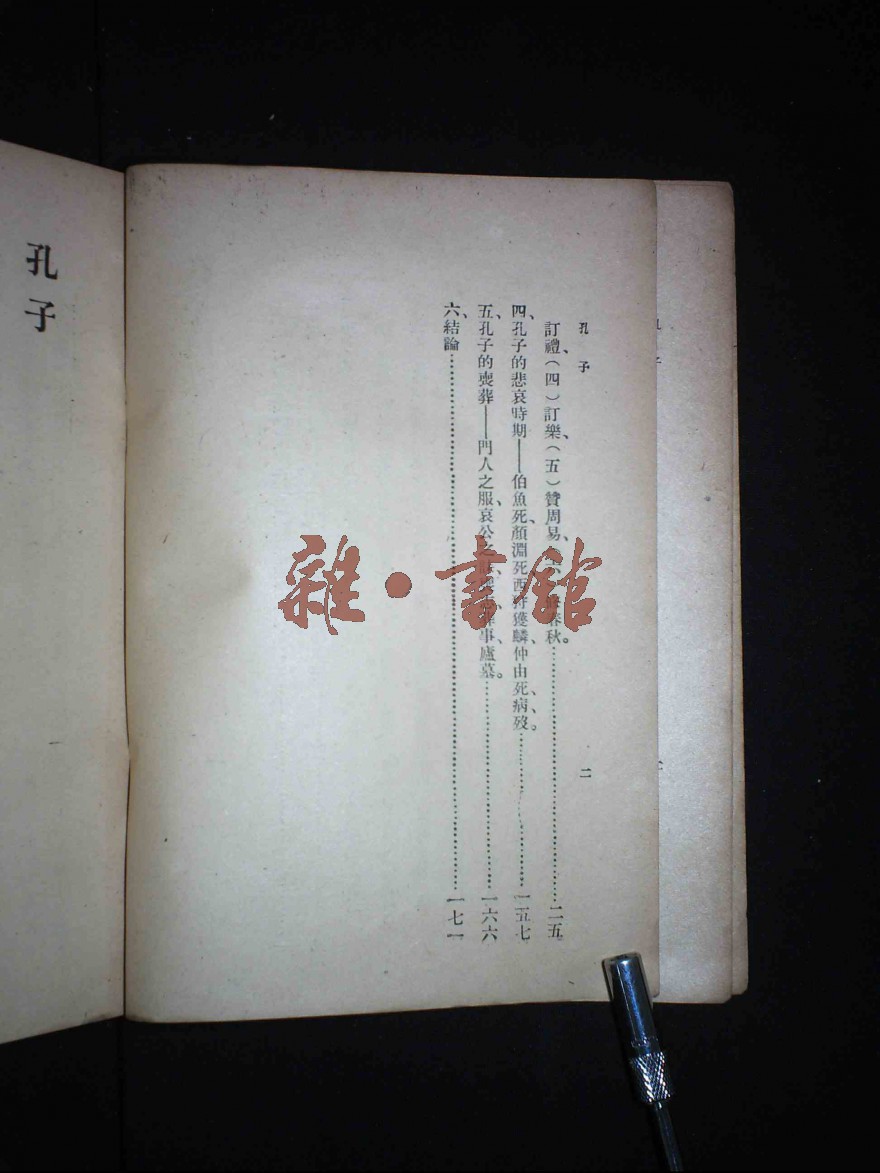 孔子
二
訂禮、(四)訂樂、(五)贊周易、春秋。……二五
四、孔子的悲哀時期——伯魚死、顏淵死、西狩獲麟、仲由死、病歿。……一五七
五、孔子的喪葬——門人之服、哀公之事、廬墓。……一六六
六、結論……一七一
孔子
雜·書館